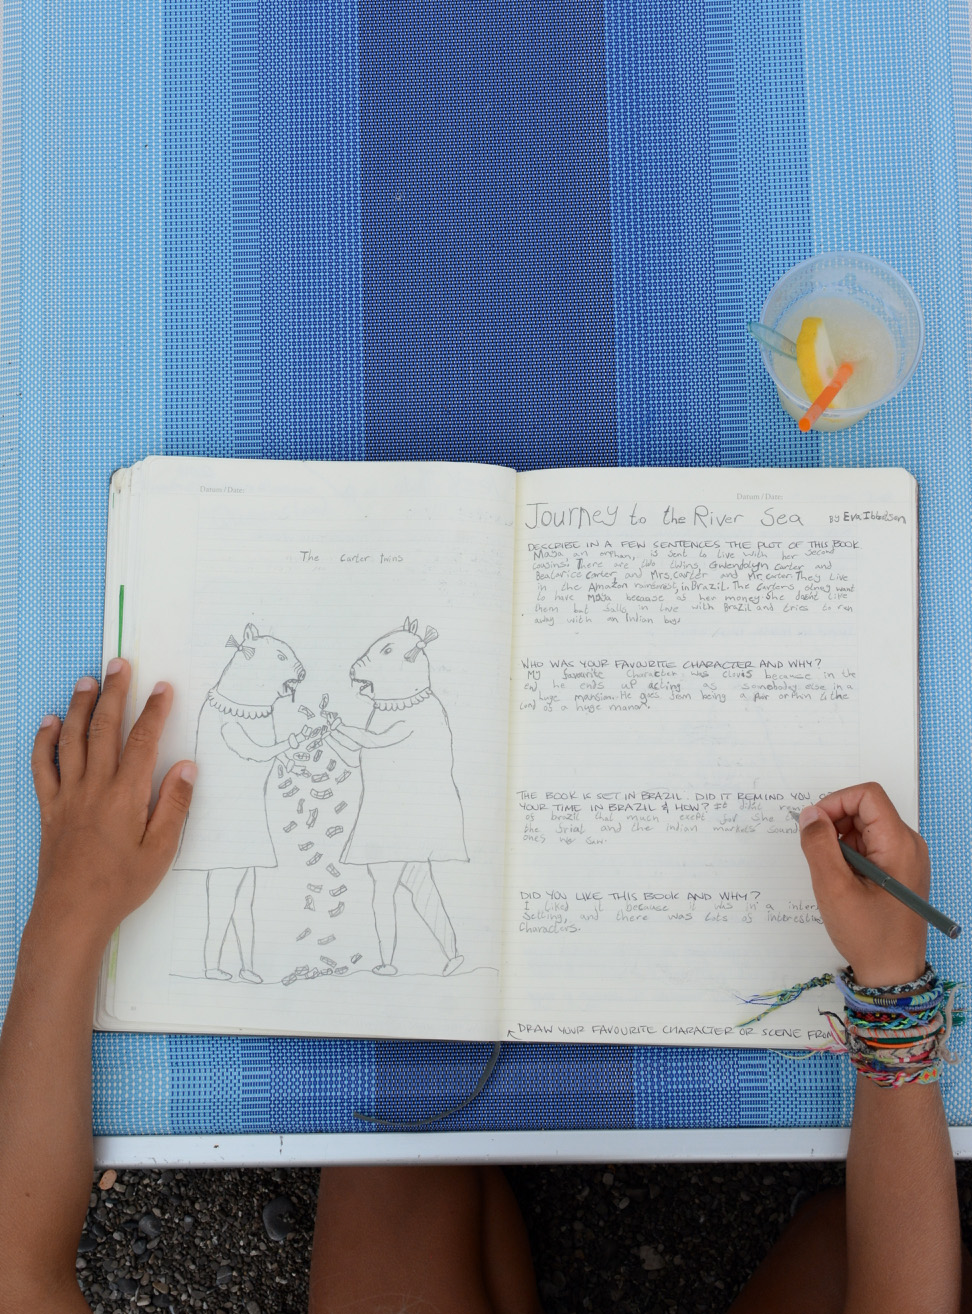 Datum/Date:
The Carter twins
Datum/Date:
Journey to the River Sea BY Eva Ibbotson
DESCRIBE IN A FEW SENTENCES THE PLOT OF THIS BOOK
Maya an orphan, is sent to live with her second
cousins. There are two twins, Gwendolyn Carter and
Beatarice Carter, and Mrs. Carter and Mr. Carter. They live
in the Amazon rainforest, in Brazil. The Carters only want
to have Maya because as her money. She doesnt like
them but falls in love with Brazil and tries to run
away with an Indian boy.
WHO WAS YOUR FAVOURITE CHARACTER AND WHY?
My favourite Character was Clovis because in the
end he ends up acting as somebody else in a
huge mansion. He goes from being a poor orfan to the
Lord of a huge manor.
THE BOOK IS SET IN BRAZIL. DID IT REMIND YOU OF
YOUR TIME IN BRAZIL & HOW? It didnt
of brazil that much exept for she
the and the indian markets sound
ones we saw.
DID YOU LIKE THIS BOOK AND WHY?
I liked it because it was in a
setting, and there was lots of
characters.
DRAW YOUR FAVOURITE CHARACTER OR SCENE FROM